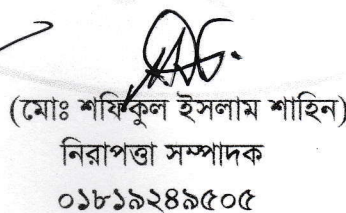 (মোঃ শফিকুল ইসলাম শাহিন)
নিরাপত্তা সম্পাদক
০১৮১৯২৪৯৫০৫